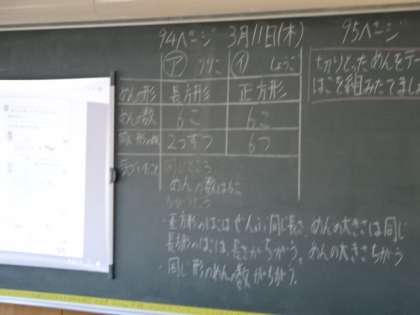 94ページ 3月11日(木) 95ページ
ア イ
めんの形 長方形 正方形
めんの数 6こ 6こ
2つずつ 6つ
同じところ
めんの数は6こ
ちがうところ
・正方形のはこはぜんぶ同じ長さ、めんの大きさは同じ
長方形のはこは、長さがちがう。めんの大きさちがう
・同じ形のめんの数がちがう。
はこを組みたてましょ